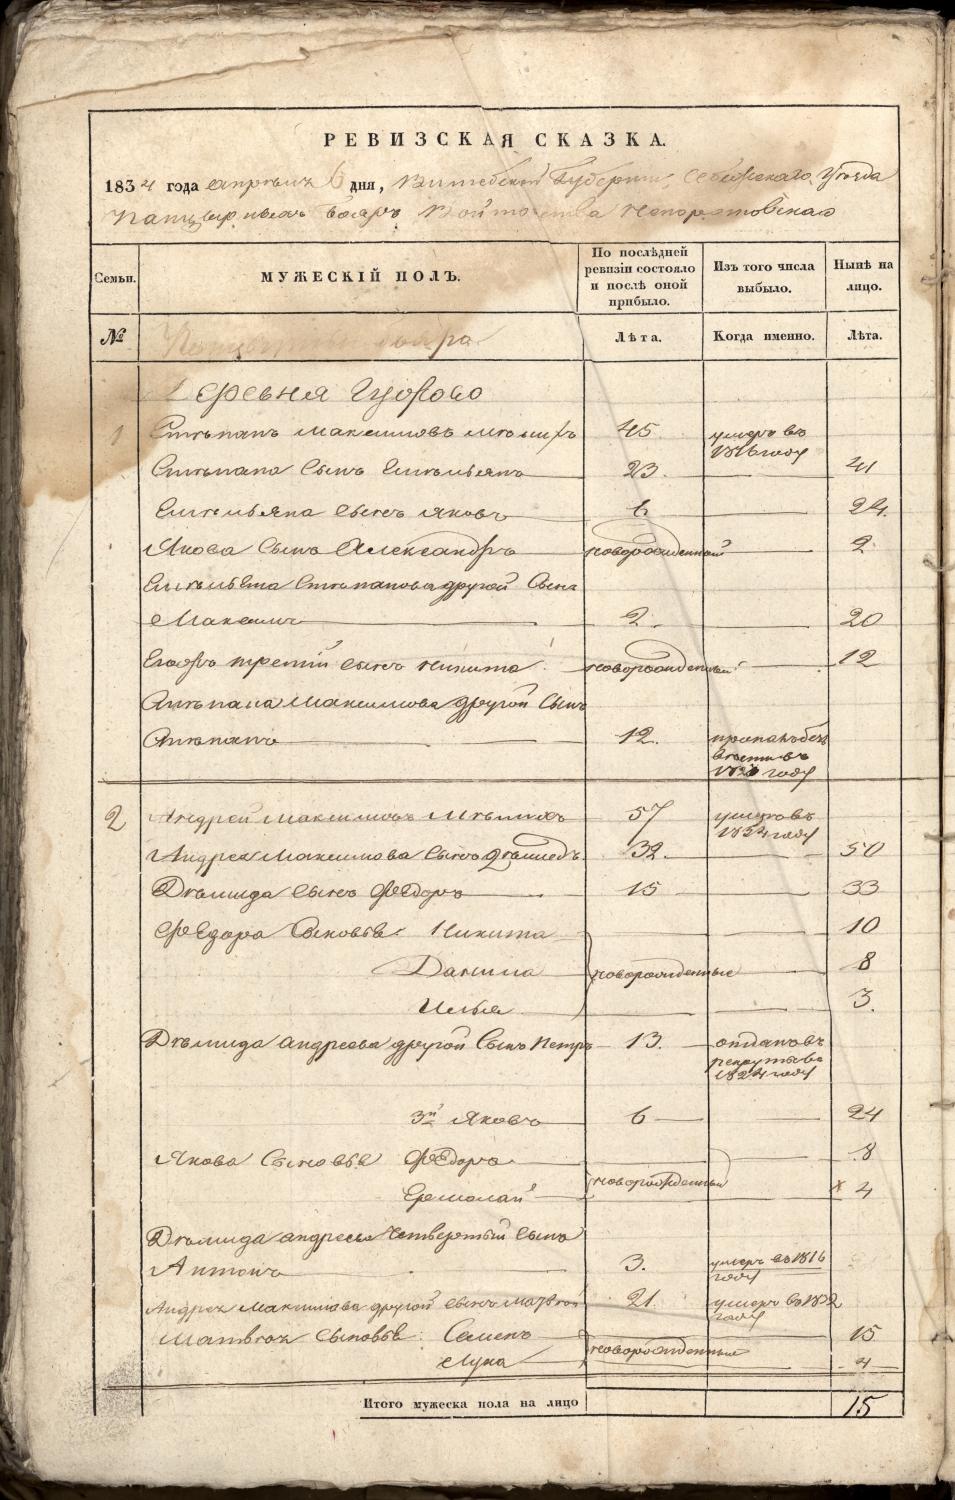 РЕВИЗСКАЯ СКАЗКА.
1834 года апреля 6 дня, Витебской Губернии, Себежского Уѣзда
Панцырныхъ бояръ Войтовства Непоротовскаго
Семьи. МУЖЕСКІЙ ПОЛЪ. По послѣдней ревизіи состояло и послѣ оной прибыло. Изъ того числа выбыло. Нынѣ на лицо.
№ Панцырные бояра Лѣта. Когда именно. Лѣта.
Деревня
1 Степанъ Максимовъ 45. умеръ въ 1816 году
Степана сынъ Емельянъ 23. 41
Емельяна сынъ Яковъ 6. 24.
Якова сынъ Александръ новорожденный 2.
Емельяна Степанова другой сынъ
Максимъ 2. 20
Егожъ третій сынъ Никита новорожденный 12
Степана Максимова другой сынъ
Степанъ 12. пропалъ безъ вѣсти въ году
2 Андрей Максимовъ 57 умеръ въ году
Андрея Максимова сынъ Демидъ 32. 50
Демида сынъ Федоръ 15 33
Федора сыновья Никита 10
Данила новорожденные 8
Илья 3.
Демида Андреева другой сынъ Петръ 13. отданъ въ рекруты въ 1824 году
3й Яковъ 6 24
Якова сыновья Федоръ 8
Ермолай новорожденные х 4
Демида Андреева четвертый сынъ
Антонъ 3. умеръ въ 1816 году
Андрея Максимова другой сынъ Матвей 21. умеръ въ 1832 году
Матвея сыновья Семенъ 15
Лука новорожденные 4
Итого мужеска пола на лицо 15